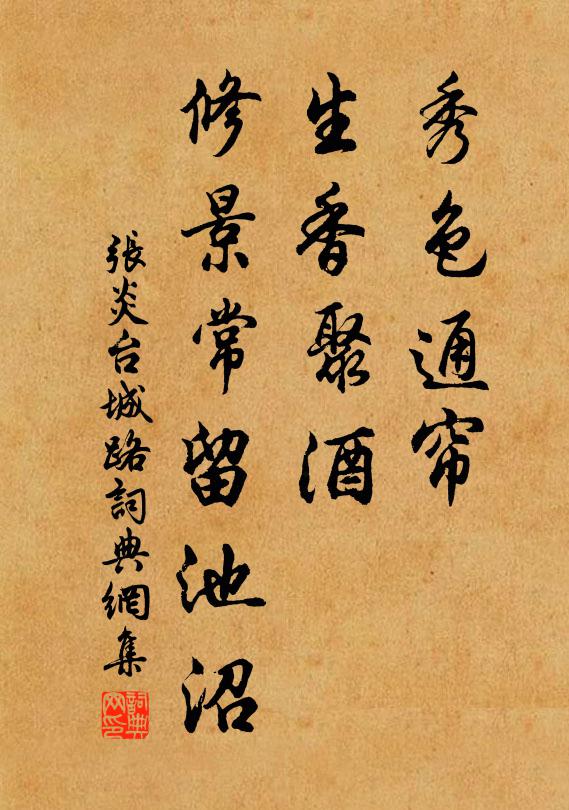 秀色通帘
生香聚酒
修景常留池沼
張炎台城路詞典網集
詞典网印